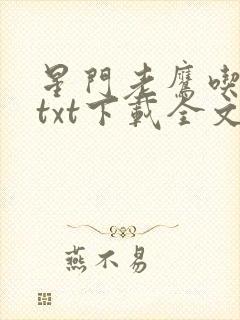 星門老鷹喫
txt下載全文
燕不易